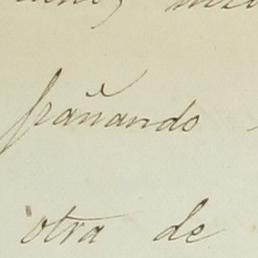 frañando
otra de